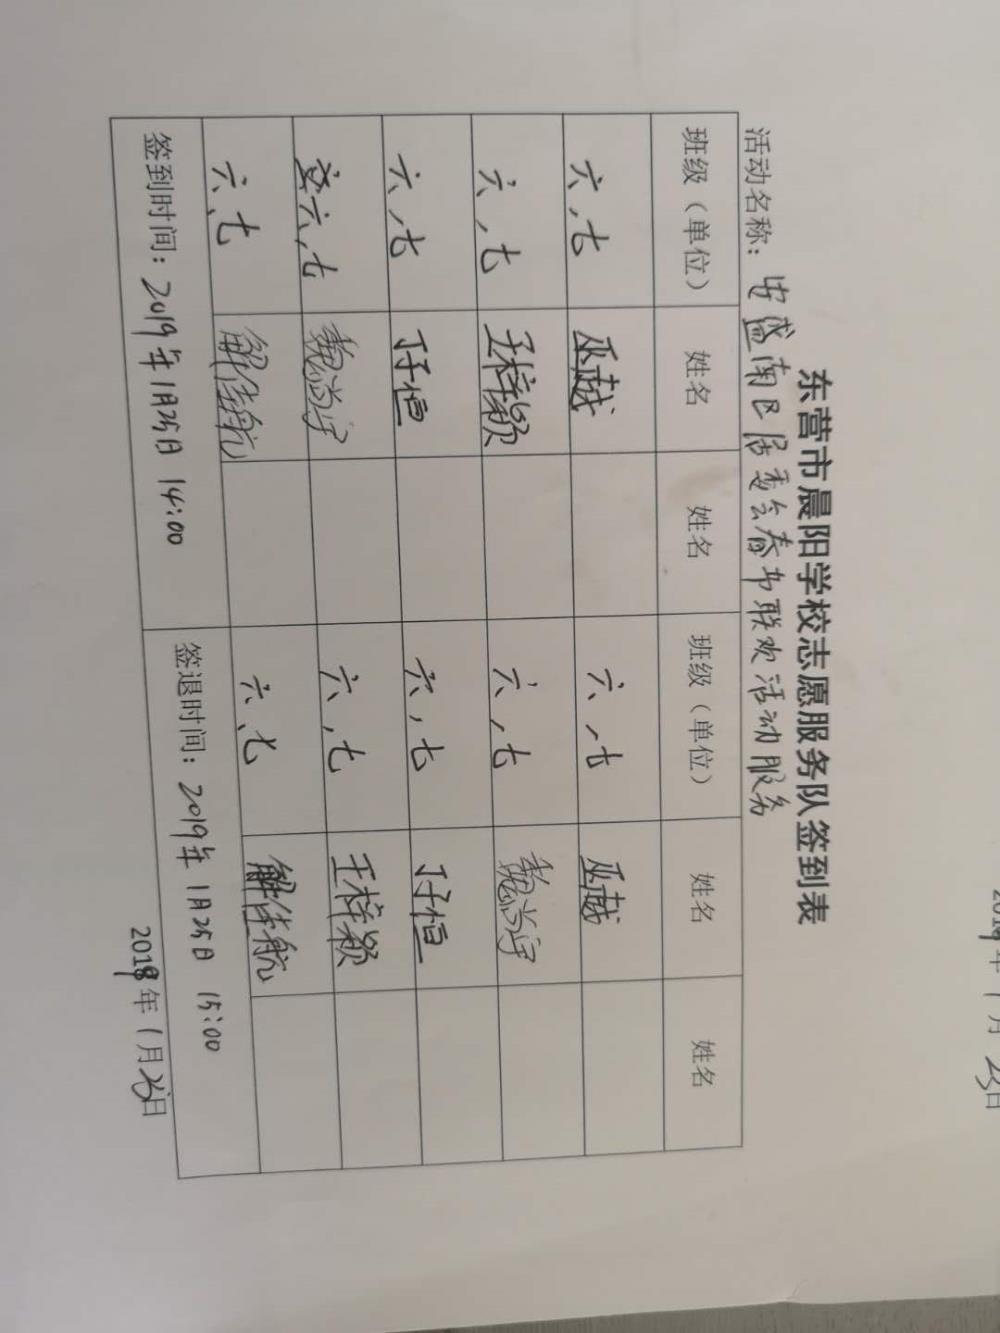 东营市晨阳学校志愿服务队签到表
活动名称：安盛南区居委会春节联欢活动服务
班级（单位） 姓名 姓名 班级（单位） 姓名 姓名
六、七 巫越 六、七 巫越
六、七 王梓颖 六、七 魏尚宇
六、七 于子恒 六、七 于子恒
六、七 魏尚宇 六、七 王梓颖
六、七 解佳航 六、七 解佳航
签到时间：2019年1月25日 14:00 签退时间：2019年1月25日 15:00
2019年1月25日
2019年1月25日